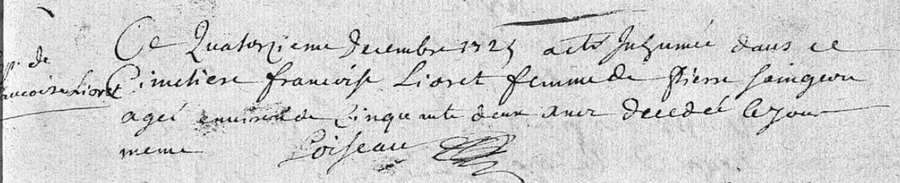 Ce Quatorzieme decembre 1725 a ete Inhumée dans ce
de
francoise Lioret
Cimetiere francoise Lioret femme de Pierre Saingeon
ageé environ de Cinquante deux ans decedeé le jour
meme Loiseau